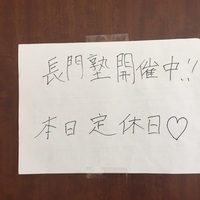 長門塾開催中!!
本日定休日♡